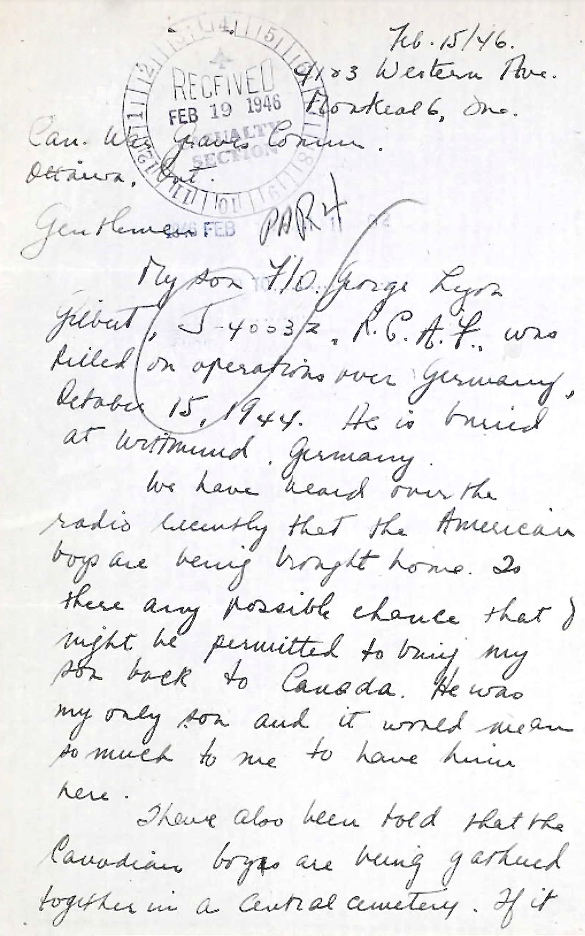 Feb. 15/46.
4183 Western Ave.
Montreal 6, Que.
RECEIVED
FEB 19 1946
CASUALTY
SECTION
Can. War Graves Comm.
Ottawa, Ont.
Gentlemen
FEB
PAR 4
My son F/O. George Lyon
Gilbert, J-40032, R.C.A.F., was
killed on operations over Germany,
October 15, 1944. He is buried
at Wittmund, Germany.
We have heard over the
radio recently that the American
boys are being brought home. Is
there any possible chance that I
might be permitted to bring my
son back to Canada. He was
my only son and it would mean
so much to me to have him
here.
I have also been told that the
Canadian boys are being gathered
together in a central cemetery. If it